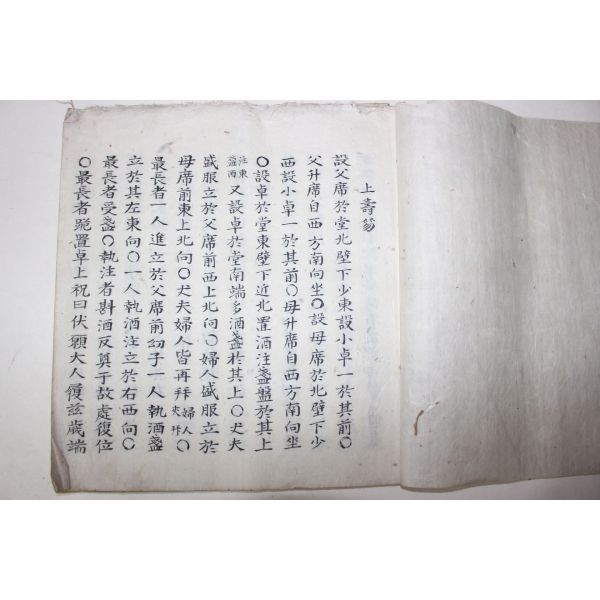 上壽笏
設父席於堂北壁下少東設小卓一於其前〇
父升席自西方南向坐〇設母席於北壁下少
西設小卓一於其前〇母升席自西方南向坐
〇設卓於堂東壁下近北置酒注盞盤於其上
注東盞西又設卓於堂南端多酒盞於其上〇丈夫
盛服立於父席前西上北向〇婦人盛服立於
母席前東上北向〇丈夫婦人皆再拜婦人夾拜〇
最長者一人進立於父席前幼子一人執酒盞
立於其左東向〇一人執酒注立於右西向〇
最長者受盞〇執注者斟酒反奠于故處復位
〇最長者跪置卓上祝曰伏願大人履玆歲端